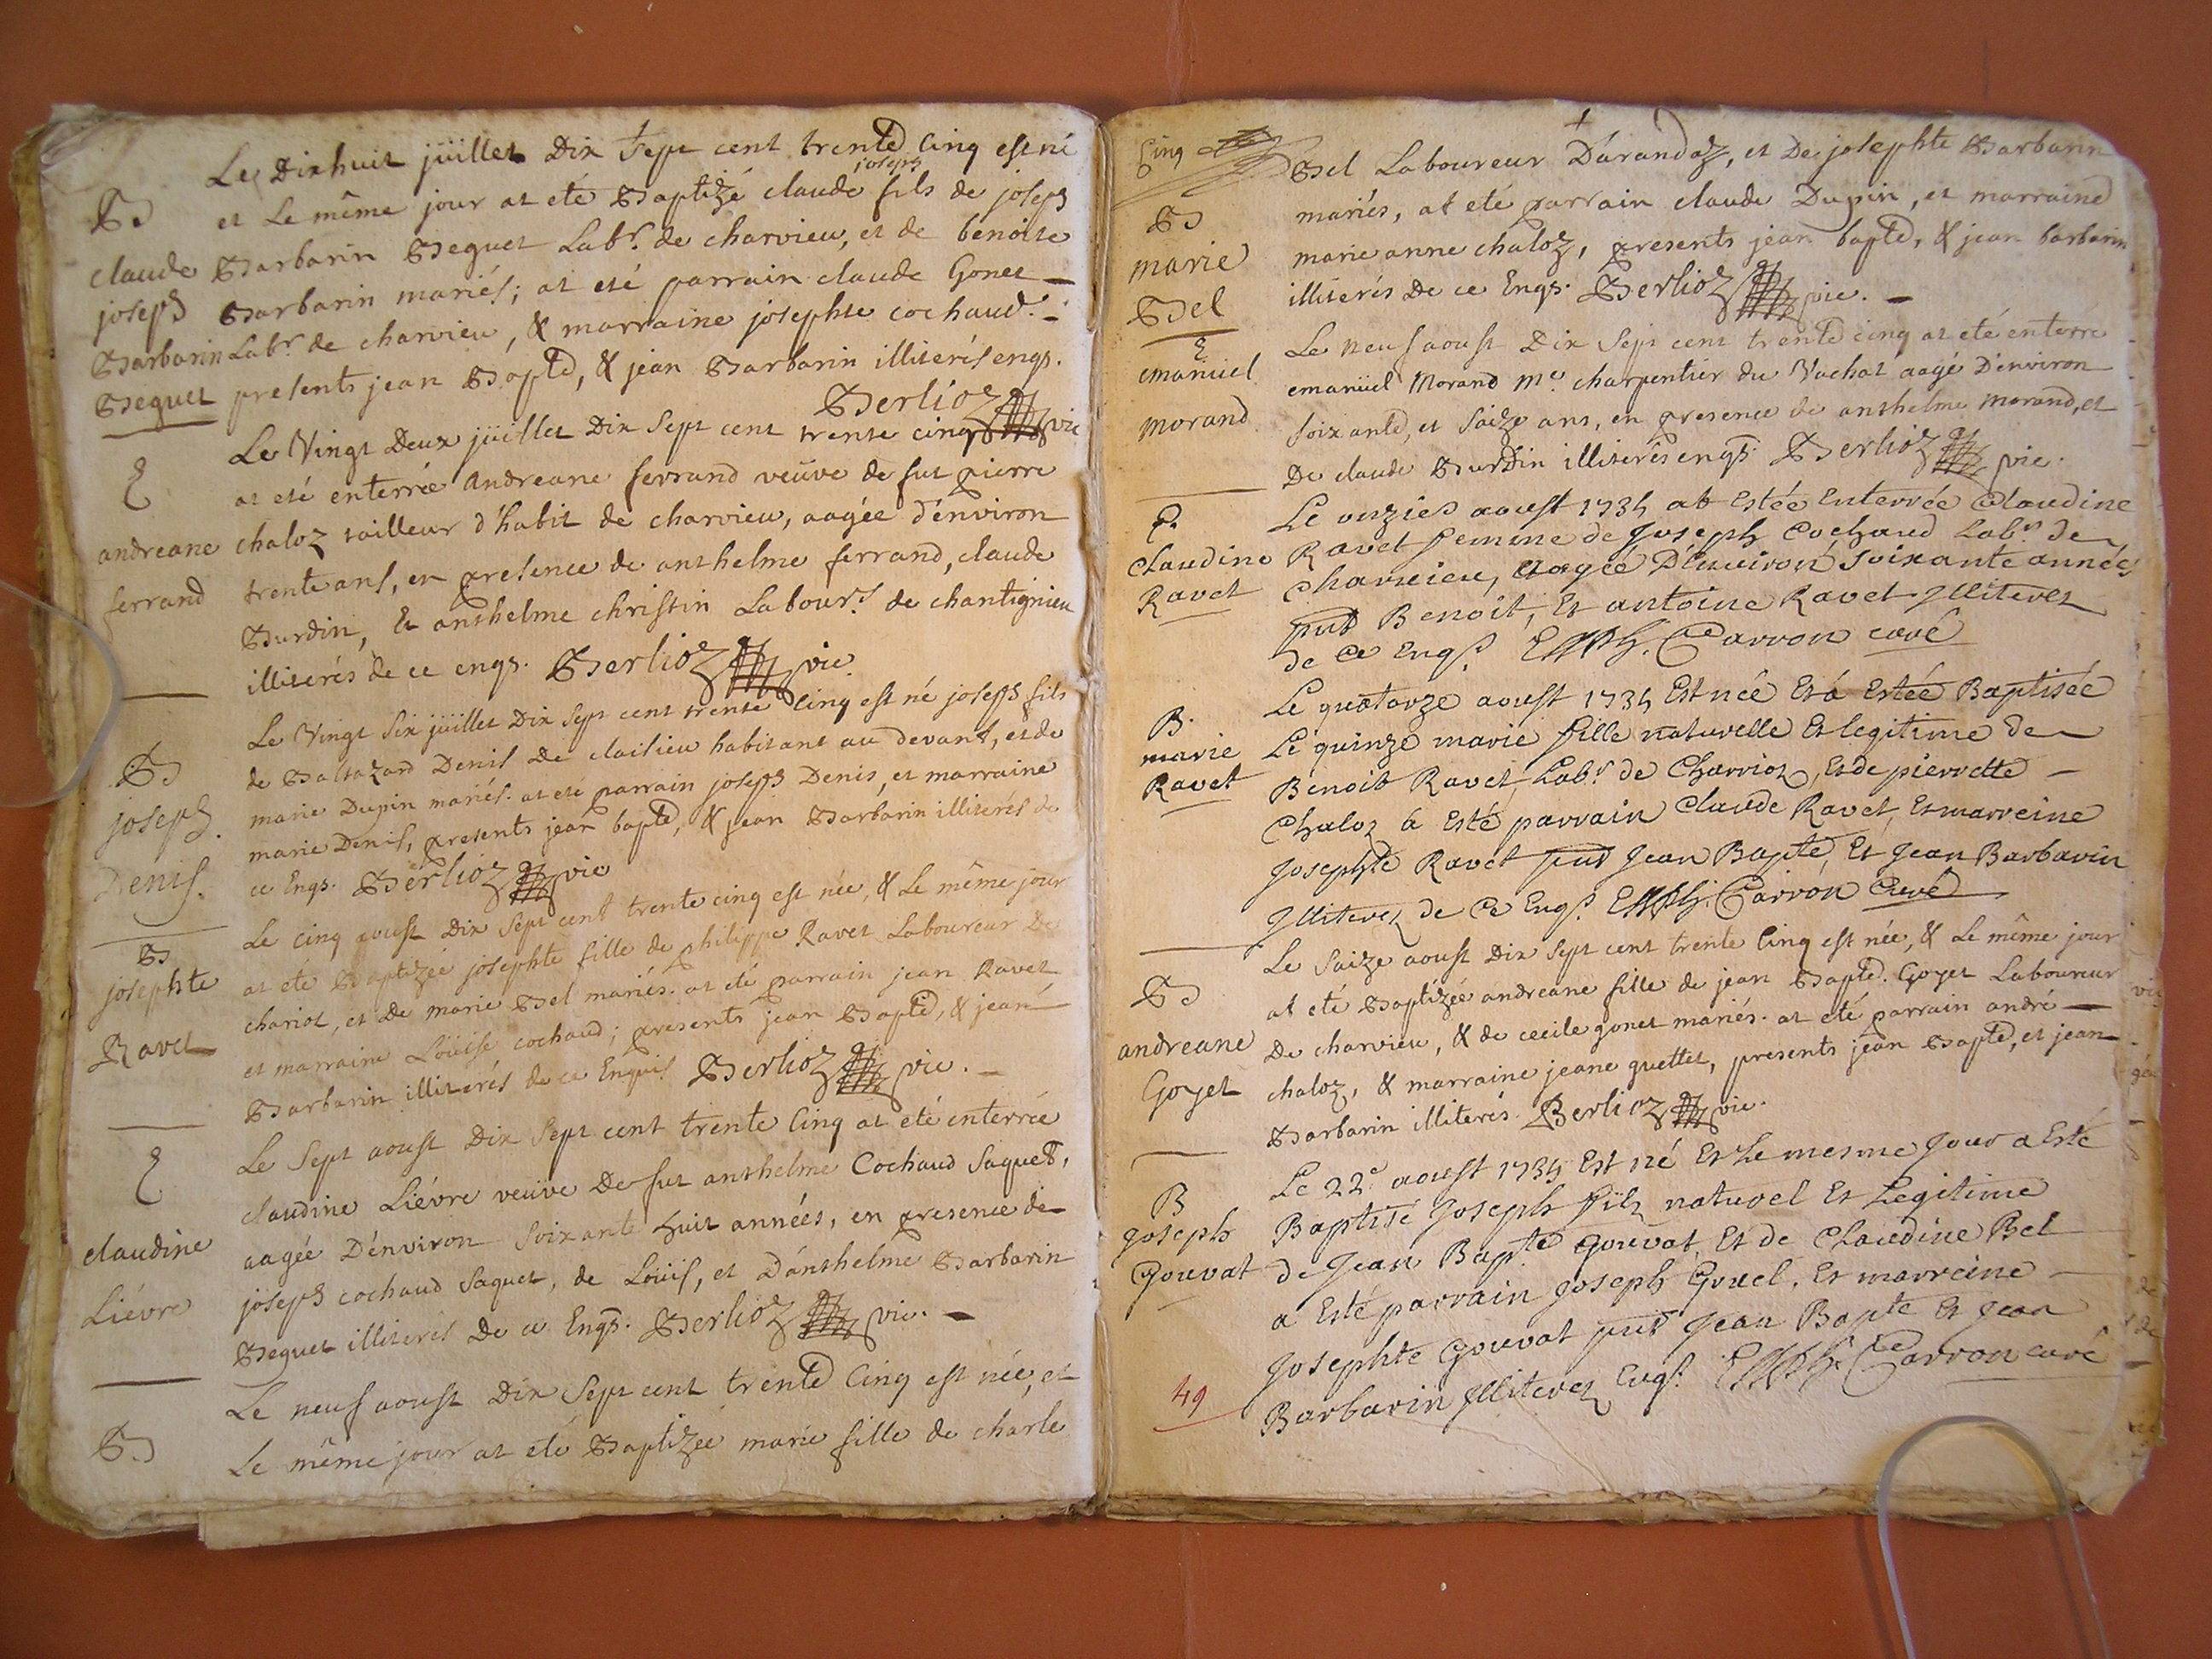 Le Dixhuit juillet Dix sept cent trente Cinq est né
B
et Le même jour at eté Baptizé claude joseph fils de joseph
claude Barbarin Beguet Labr. de charvieu, et de benoite
joseph Barbarin mariés; at eté parrain claude Gonet
Barbarin Labr. de charvieu, & marraine josephte cochaud.
Beguet presents jean Bapte, & jean Barbarin illiterés enqs.
Berlioz vic
Le Vingt Deux juillet Dix Sept cent trente cinq
E
at eté enterrée Andreane ferrand veüve de fut pierre
andreane chaloz tailleur d'habit de charvieu, aagée d'environ
ferrand trente ans, en presence de anthelme ferrand, claude
Burdin, & anthelme christin Labours. de chantignieu
illiterés de ce enqs. Berlioz vic
Le Vingt Six juillet Dix Sept cent trente Cinq est né joseph fils
B
de Baltazard Denis De claisieu habitant au devant, et de
joseph marie Dupin mariés. at eté parrain joseph Denis, et marraine
Denis. marie Denis, presents jean bapte, & jean Barbarin illiterés de
ce Enqs. Berlioz vic
Le cinq aoust Dix Sept cent trente cinq est née, & Le même jour
B
josephte at eté Baptizée josephte fille de philippe Ravet Laboureur De
chariot, et De marie Bel mariés. at eté parrain jean Ravet,
Ravet et marraine Loüise cochaud; presents jean Bapte, & jean
Barbarin illiterés de ce Enquis Berlioz vic.
Le Sept aoust Dix Sept cent trente Cinq at eté enterrée
E
claudine Liévre veüve De fut anthelme Cochaud Saquet,
claudine aagée D'environ Soixante huit années, en presence de
Liévre joseph cochaud Saquet, de Loüis, et D'anthelme Barbarin
Beguet illiterés De ce Enqs. Berlioz vic.
Le neuf aoust Dix Sept cent trente Cinq est née, et
B
Le même jour at eté Baptizée marie fille de charle
Cinq
Bel Laboureur D'arandaz, et De josephte Barbarin
B
mariés, at eté parrain claude Dupin, et marraine
marie marie anne chaloz, presents jean bapte, & jean barbarin
Bel illiterés De ce Enqs. Berlioz vic.
E
Le neuf aoust Dix Sept cent trente cinq at eté enterré
emanüel emanüel Morand me charpentier du Vachat aagé D'environ
morand Soixante, et Saize ans, en presence de anthelme morand, et
De claude Burdin illiterés enqs. Berlioz vic.
E
Le onzie aoust 1735 at Estée Enterrée Claudine
claudine Ravet femme de Joseph Cochaud Labr. de
Ravet Charvieu, Aagée D'Environ soixante années
pnt Benoit, Et antoine Ravet Jlliterez
de Ce Enqs. Carron curé
B.
Le quatorze aoust 1735 Est née Et à Estée Baptisée
marie Le quinze marie fille naturelle Et legitime de
Ravet Benoit Ravet, Labr. de Charriot, Et de pierrette
Chaloz à Esté parrain Claude Ravet, Et marreine
Josephte Ravet pnt Jean Bapte, Et Jean Barbarin
Jlliterez de Ce Enqs. Carron Curé
Le Saize aoust Dix Sept cent trente Cinq est née, & Le même jour
B
at eté Baptizée andreane fille de jean Bapte. Goyet Laboureur
andreane De charvieu, & de cecile gonet mariés. at eté parrain andré
Goyet chaloz, & marraine jeane quettet, presents jean Bapte, et jean
Barbarin illiterés. Berlioz vic.
Le 22e aoust 1735 Est né Et Le mesme Jour a Esté
B
Joseph Baptisé Joseph fils naturel Et Legitime
Gouvat de Jean Bapte Gouvat, Et de Claudine Bel
a Esté parrain Joseph Gruel, Et marreine
Josephte Gouvat pnt Jean Bapte Et Jean
49 Barbarin Jlliterez Enqs. Carron curé